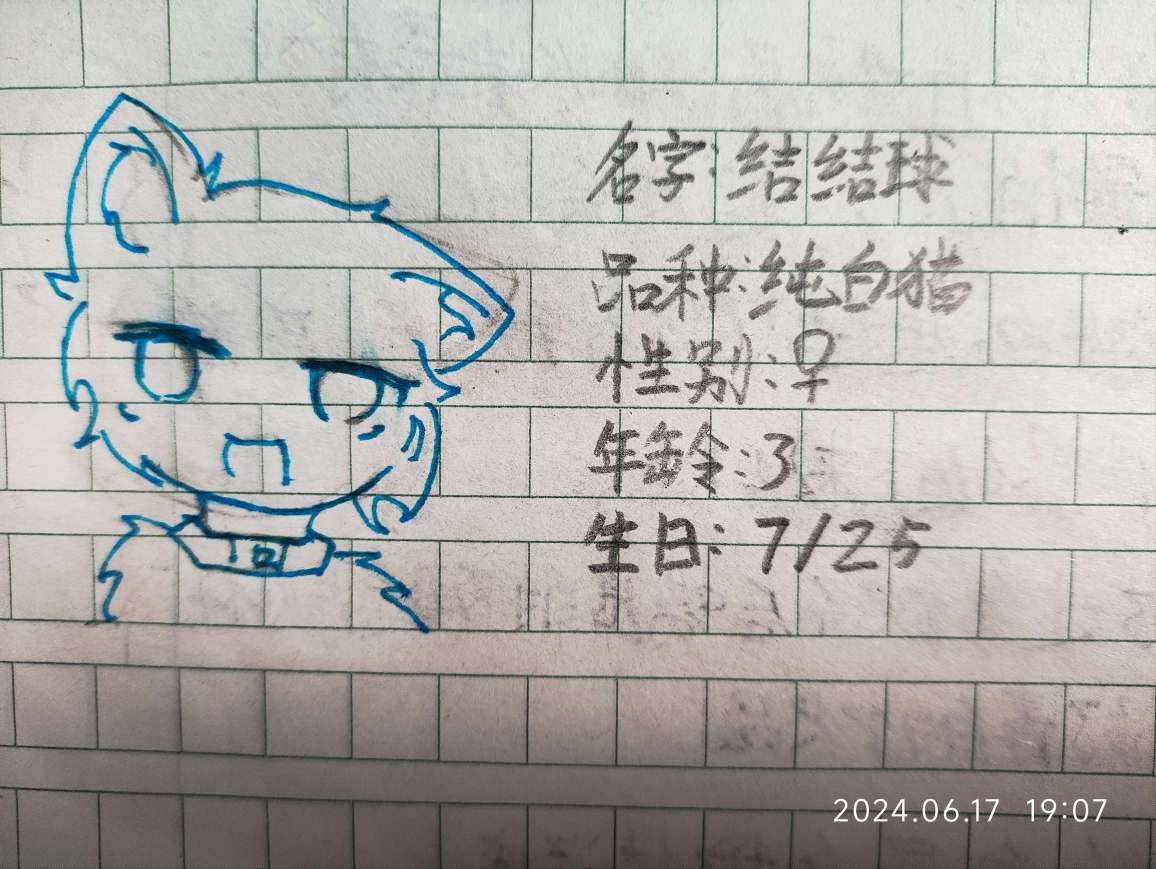 名字:结结球
品种:纯白猫
性别:♀
年龄:3
生日:7/25
2024.06.17 19:07